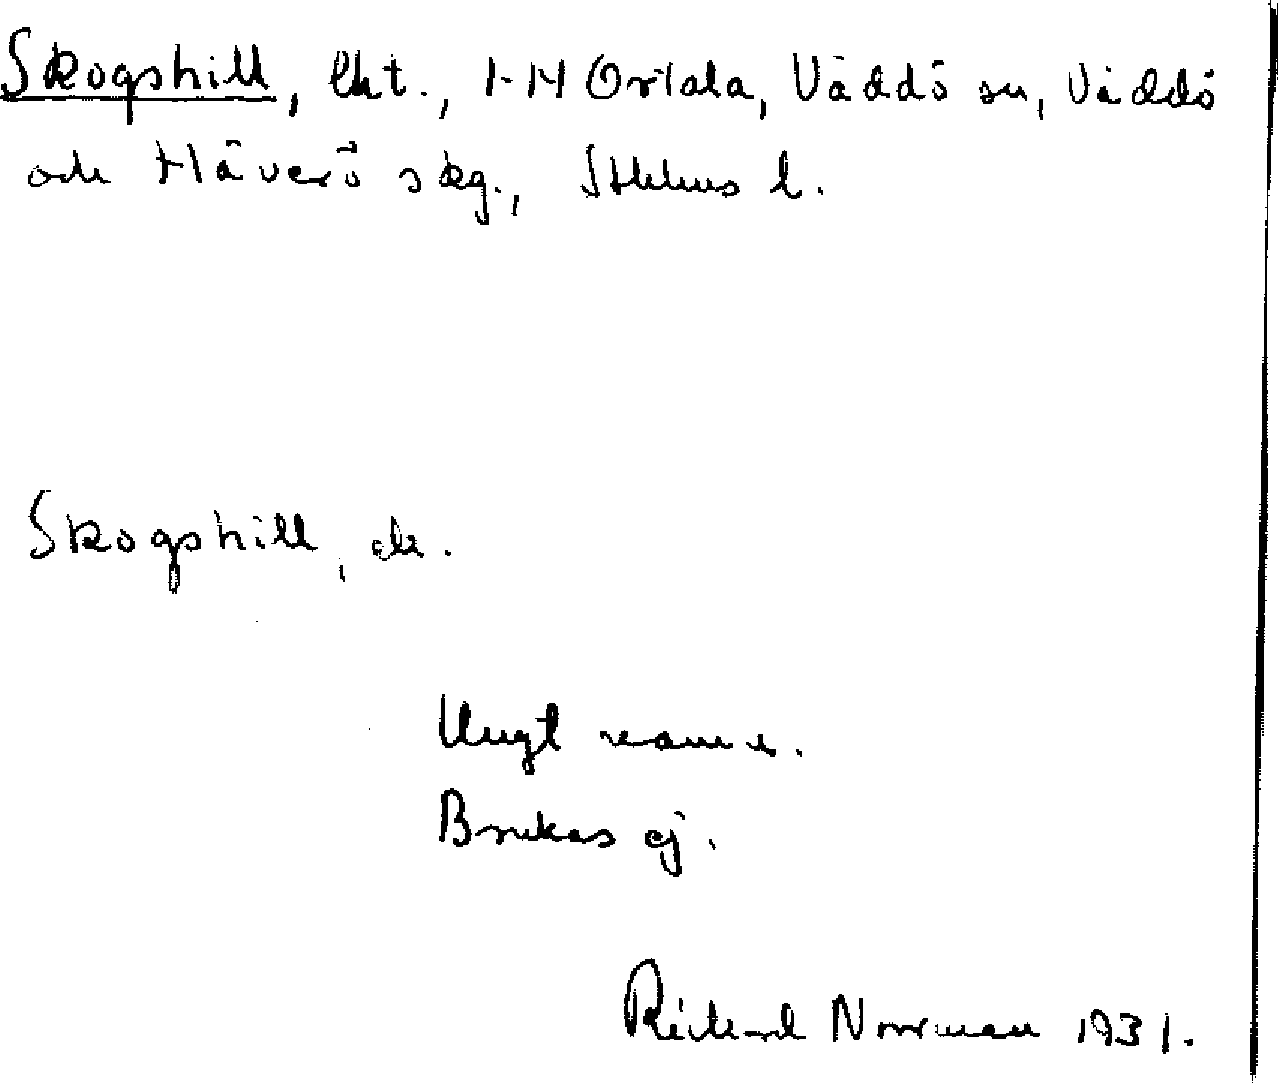 Skogshill, lht., HH Ortala, Väddö sn, Väddö
och Häverö skg., Sthlms l.
Skogshill, de.
Ungt namn.
Brukas ej.
Rickard Norrman 1931.